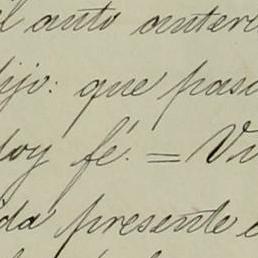 el auto anteri
dijo: que pasa
doy fé. = Vi
ida presente e